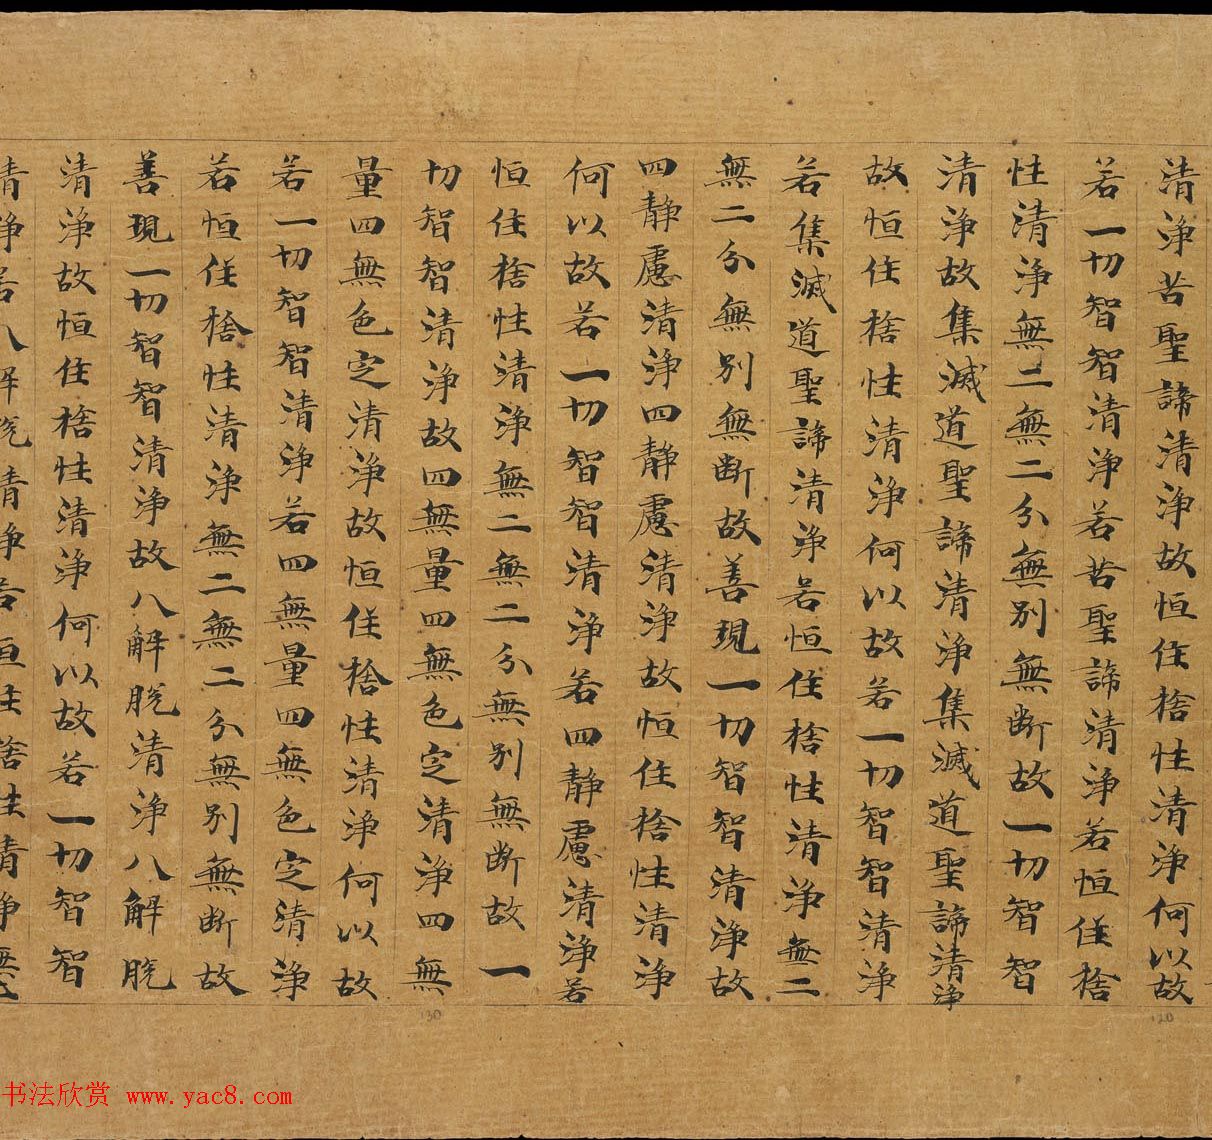 清淨苦聖諦清淨故恒住捨性清淨何以故
若一切智智清淨若苦聖諦清淨若恒住捨
性清淨無二無二分無別無断故一切智智
清淨故集滅道聖諦清淨集滅道聖諦清淨
故恒住捨性清淨何以故若一切智智清淨
若集滅道聖諦清淨若恒住捨性清淨無二
無二分無別無断故善現一切智智清淨故
四靜慮清淨四靜慮清淨故恒住捨性清淨
何以故若一切智智清淨若四靜慮清淨若
恒住捨性清淨無二無二分無別無断故一
切智智清淨故四無量四無色定清淨四無
量四無色定清淨故恒住捨性清淨何以故
若一切智智清淨若四無量四無色定清淨
若恒住捨性清淨無二無二分無別無断故
善現一切智智清淨故八解脫清淨八解脫
清淨故恒住捨性清淨何以故若一切智智
清淨若八解脫清淨若恒住捨性清淨無二
120
130
书法欣赏 www.yac8.com